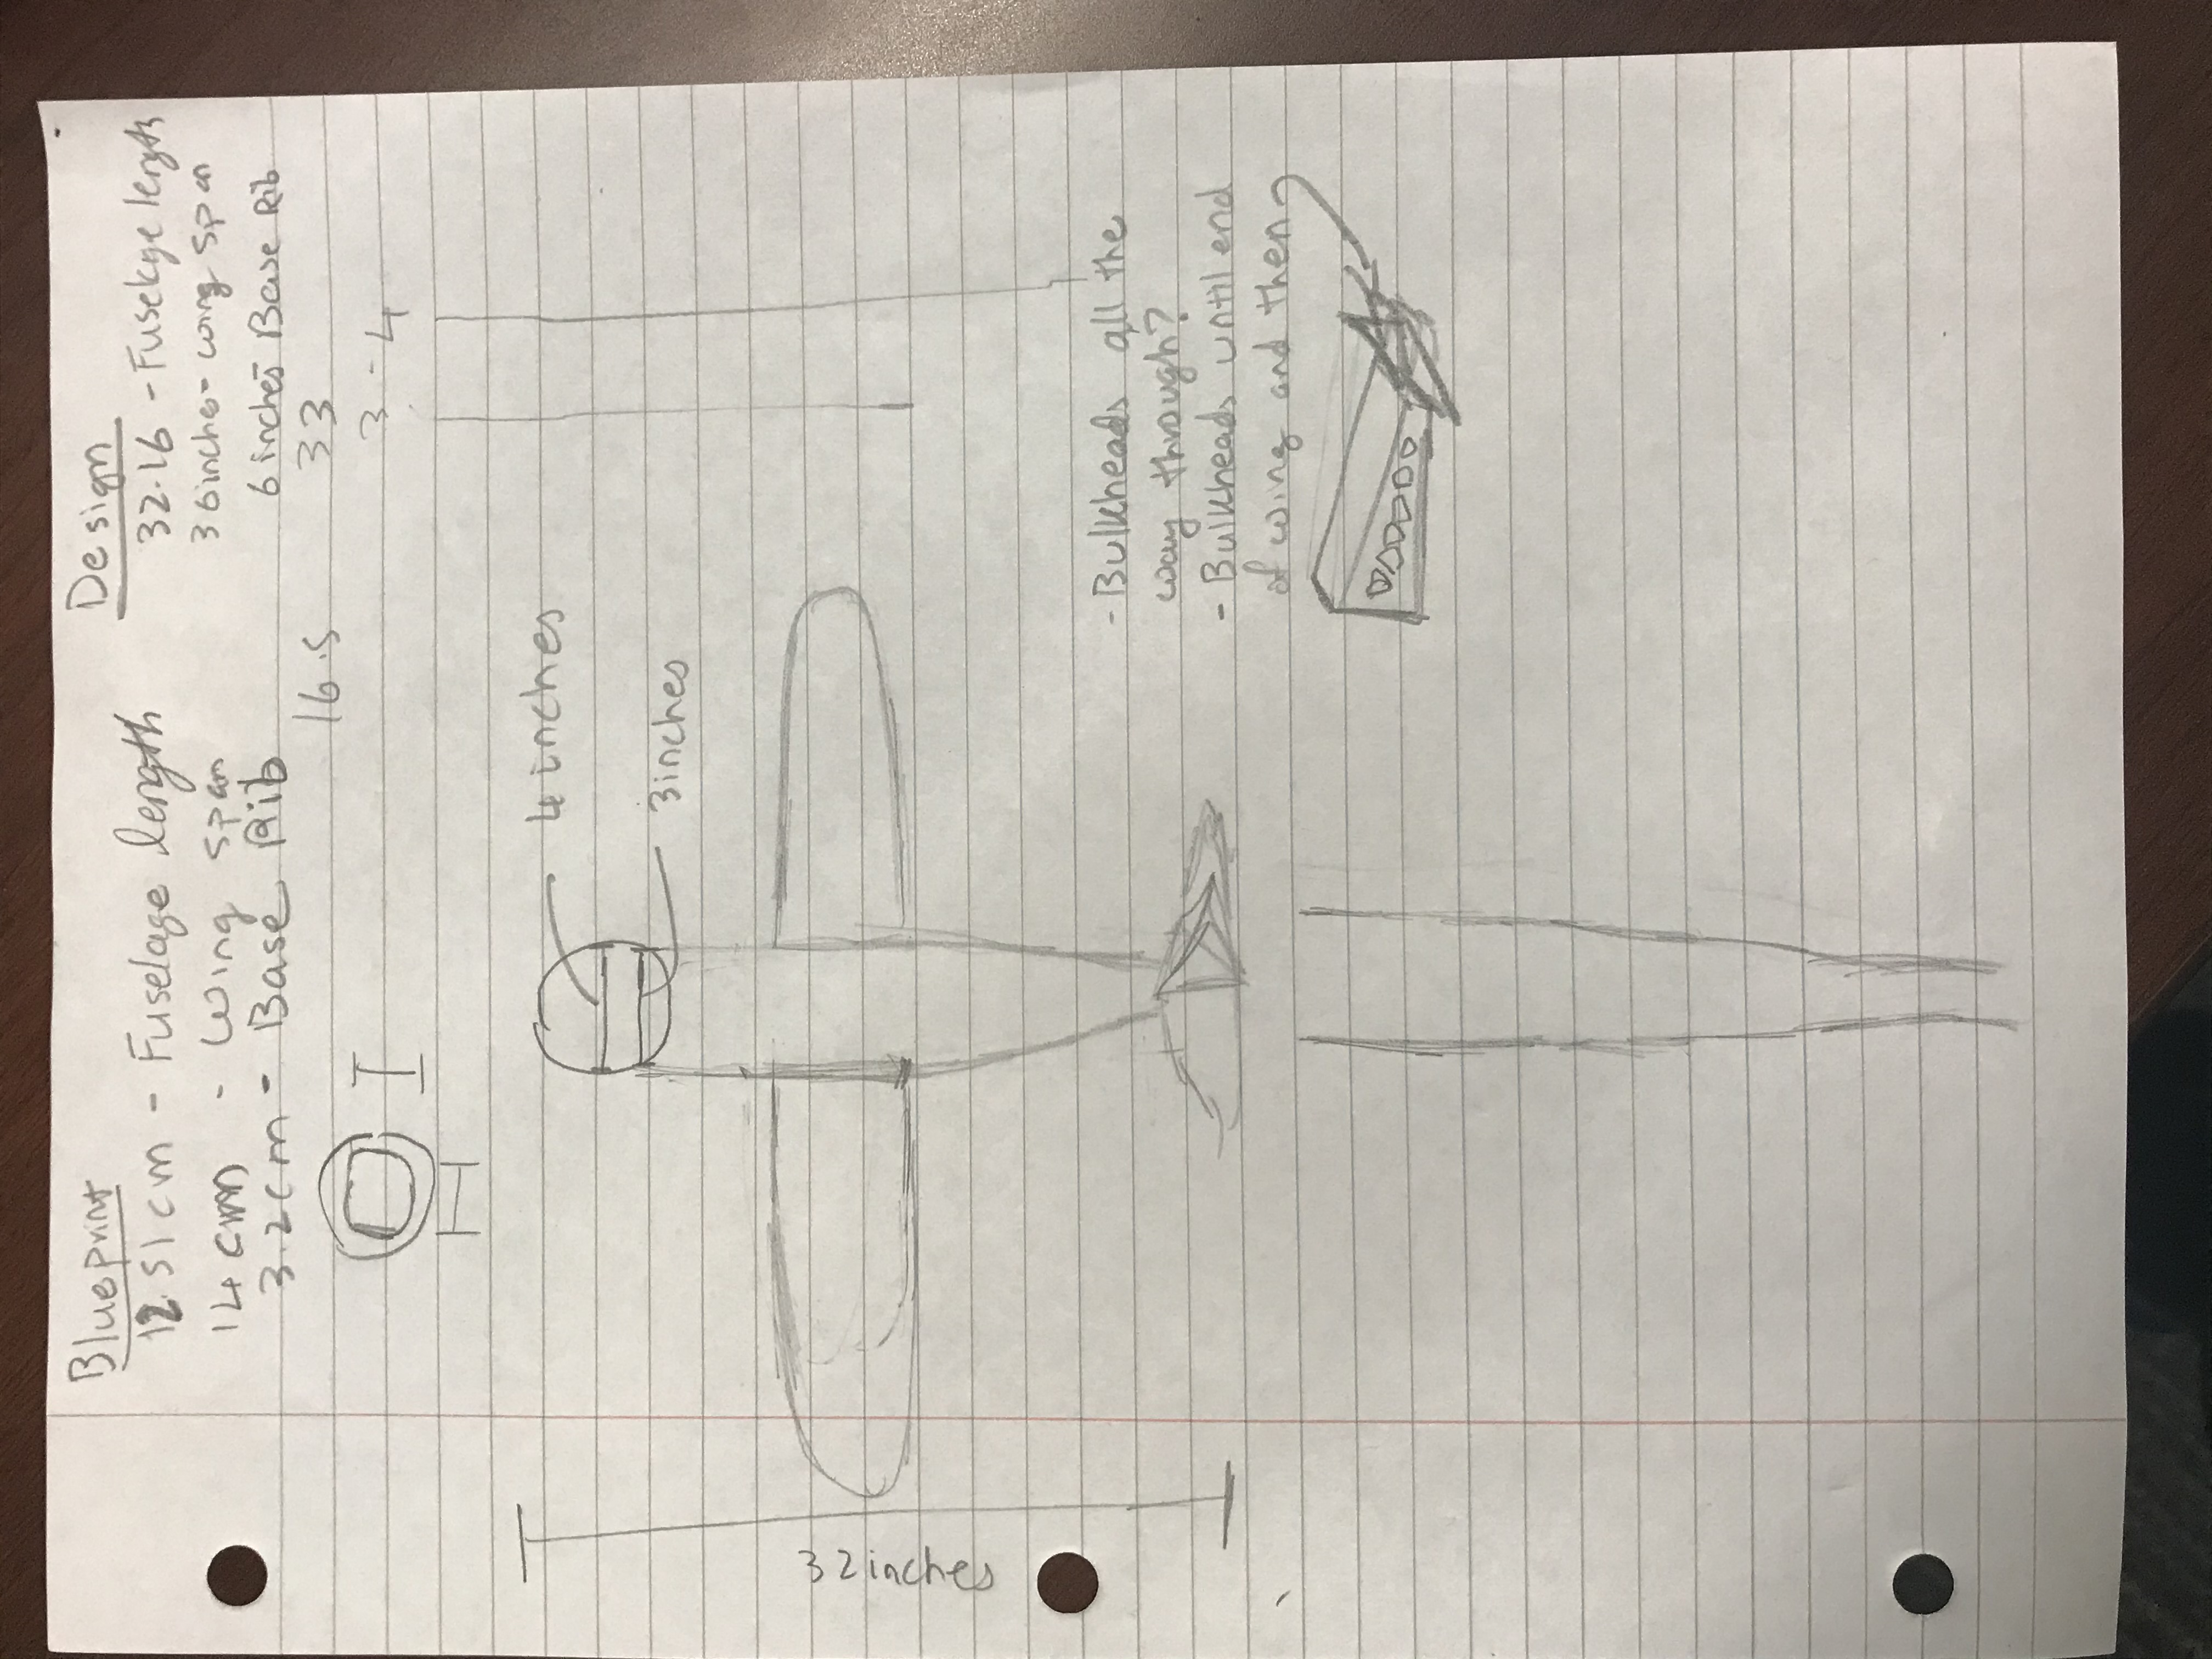 Blueprint
12.51cm - Fuselage length
14 cm - wing span
3.2cm - Base Rib
Design
32.16 - Fuselage length
36inches - wing span
6 inches Base Rib
16.5
33
3 - 4
4 inches
3inches
32inches
- Bulkheads all the
way through?
- Bulkheads until end
of wing and then